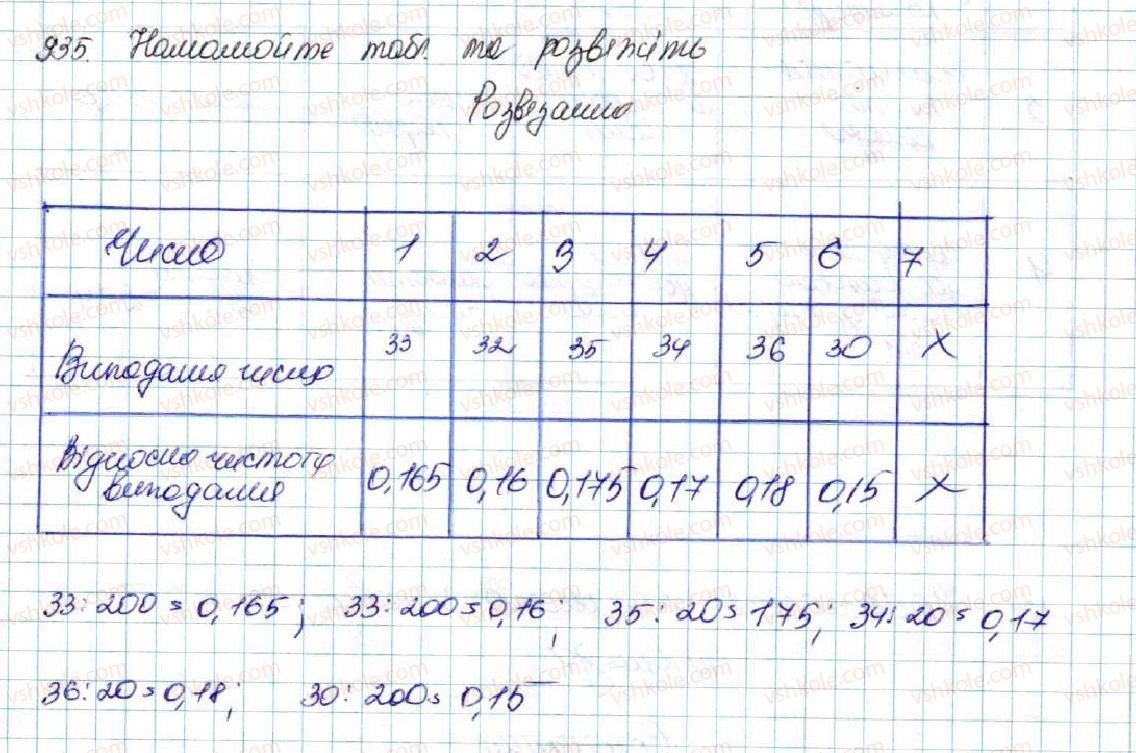 935. Намамойте табл. та розвяжіть
Розвязання
Число 1 2 3 4 5 6 7
Випадання число 33 32 35 34 36 30 X
Відносна чистота
випадання 0,165 0,16 0,175 0,17 0,18 0,15 X
33:200=0,165; 33:200=0,16; 35:20=175; 34:20=0,17
36:20=0,18; 30:200=0,15